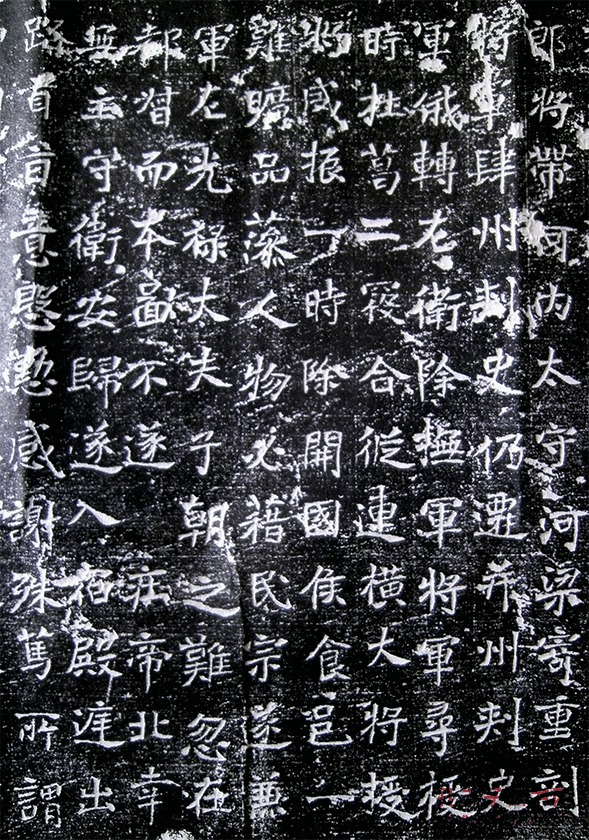 郎將帶河內太守河梁寄重剖
將軍肆州刾史仍遷并州刾史
軍俄轉左衛除撫軍將軍尋授
時杜葛二寇合從連橫大將授
將威振一時除開國侯食邑一
難曠品藻人物必藉民宗遂兼
軍左光祿大夫子朝之難忽在
都督而本啚不遂 莊帝北幸
無主守衛安歸遂入宿殿庭出
路有旨意慇懃感謝殊篤所謂